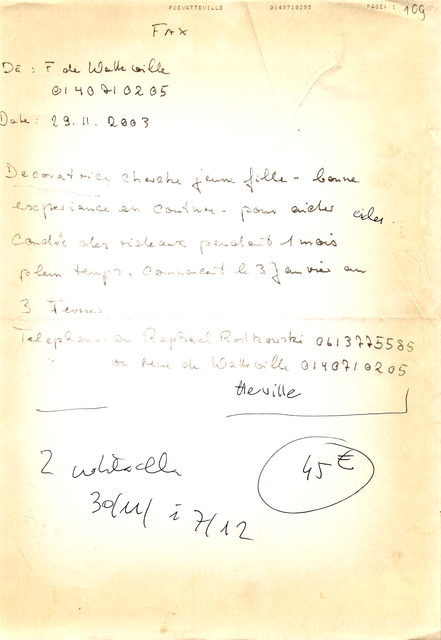 FDEWATTEVILLE 0140710205 PAGE: 1 109
FAX
De: F de Watteville
0140710205
Date: 29.11.2003
Decoratrice cherche jeune fille - bonne
experiance en couture - pour aider
Coudre des rideaux pendant 1 mois
plein temps. Commencent le 3 Janvier au
3 Fevrier
Telephoner au Raphael Rutkowski 0613775585
ou Mme de Watteville 0140710205
tteville
2
30/11/ i 7/12
45 €